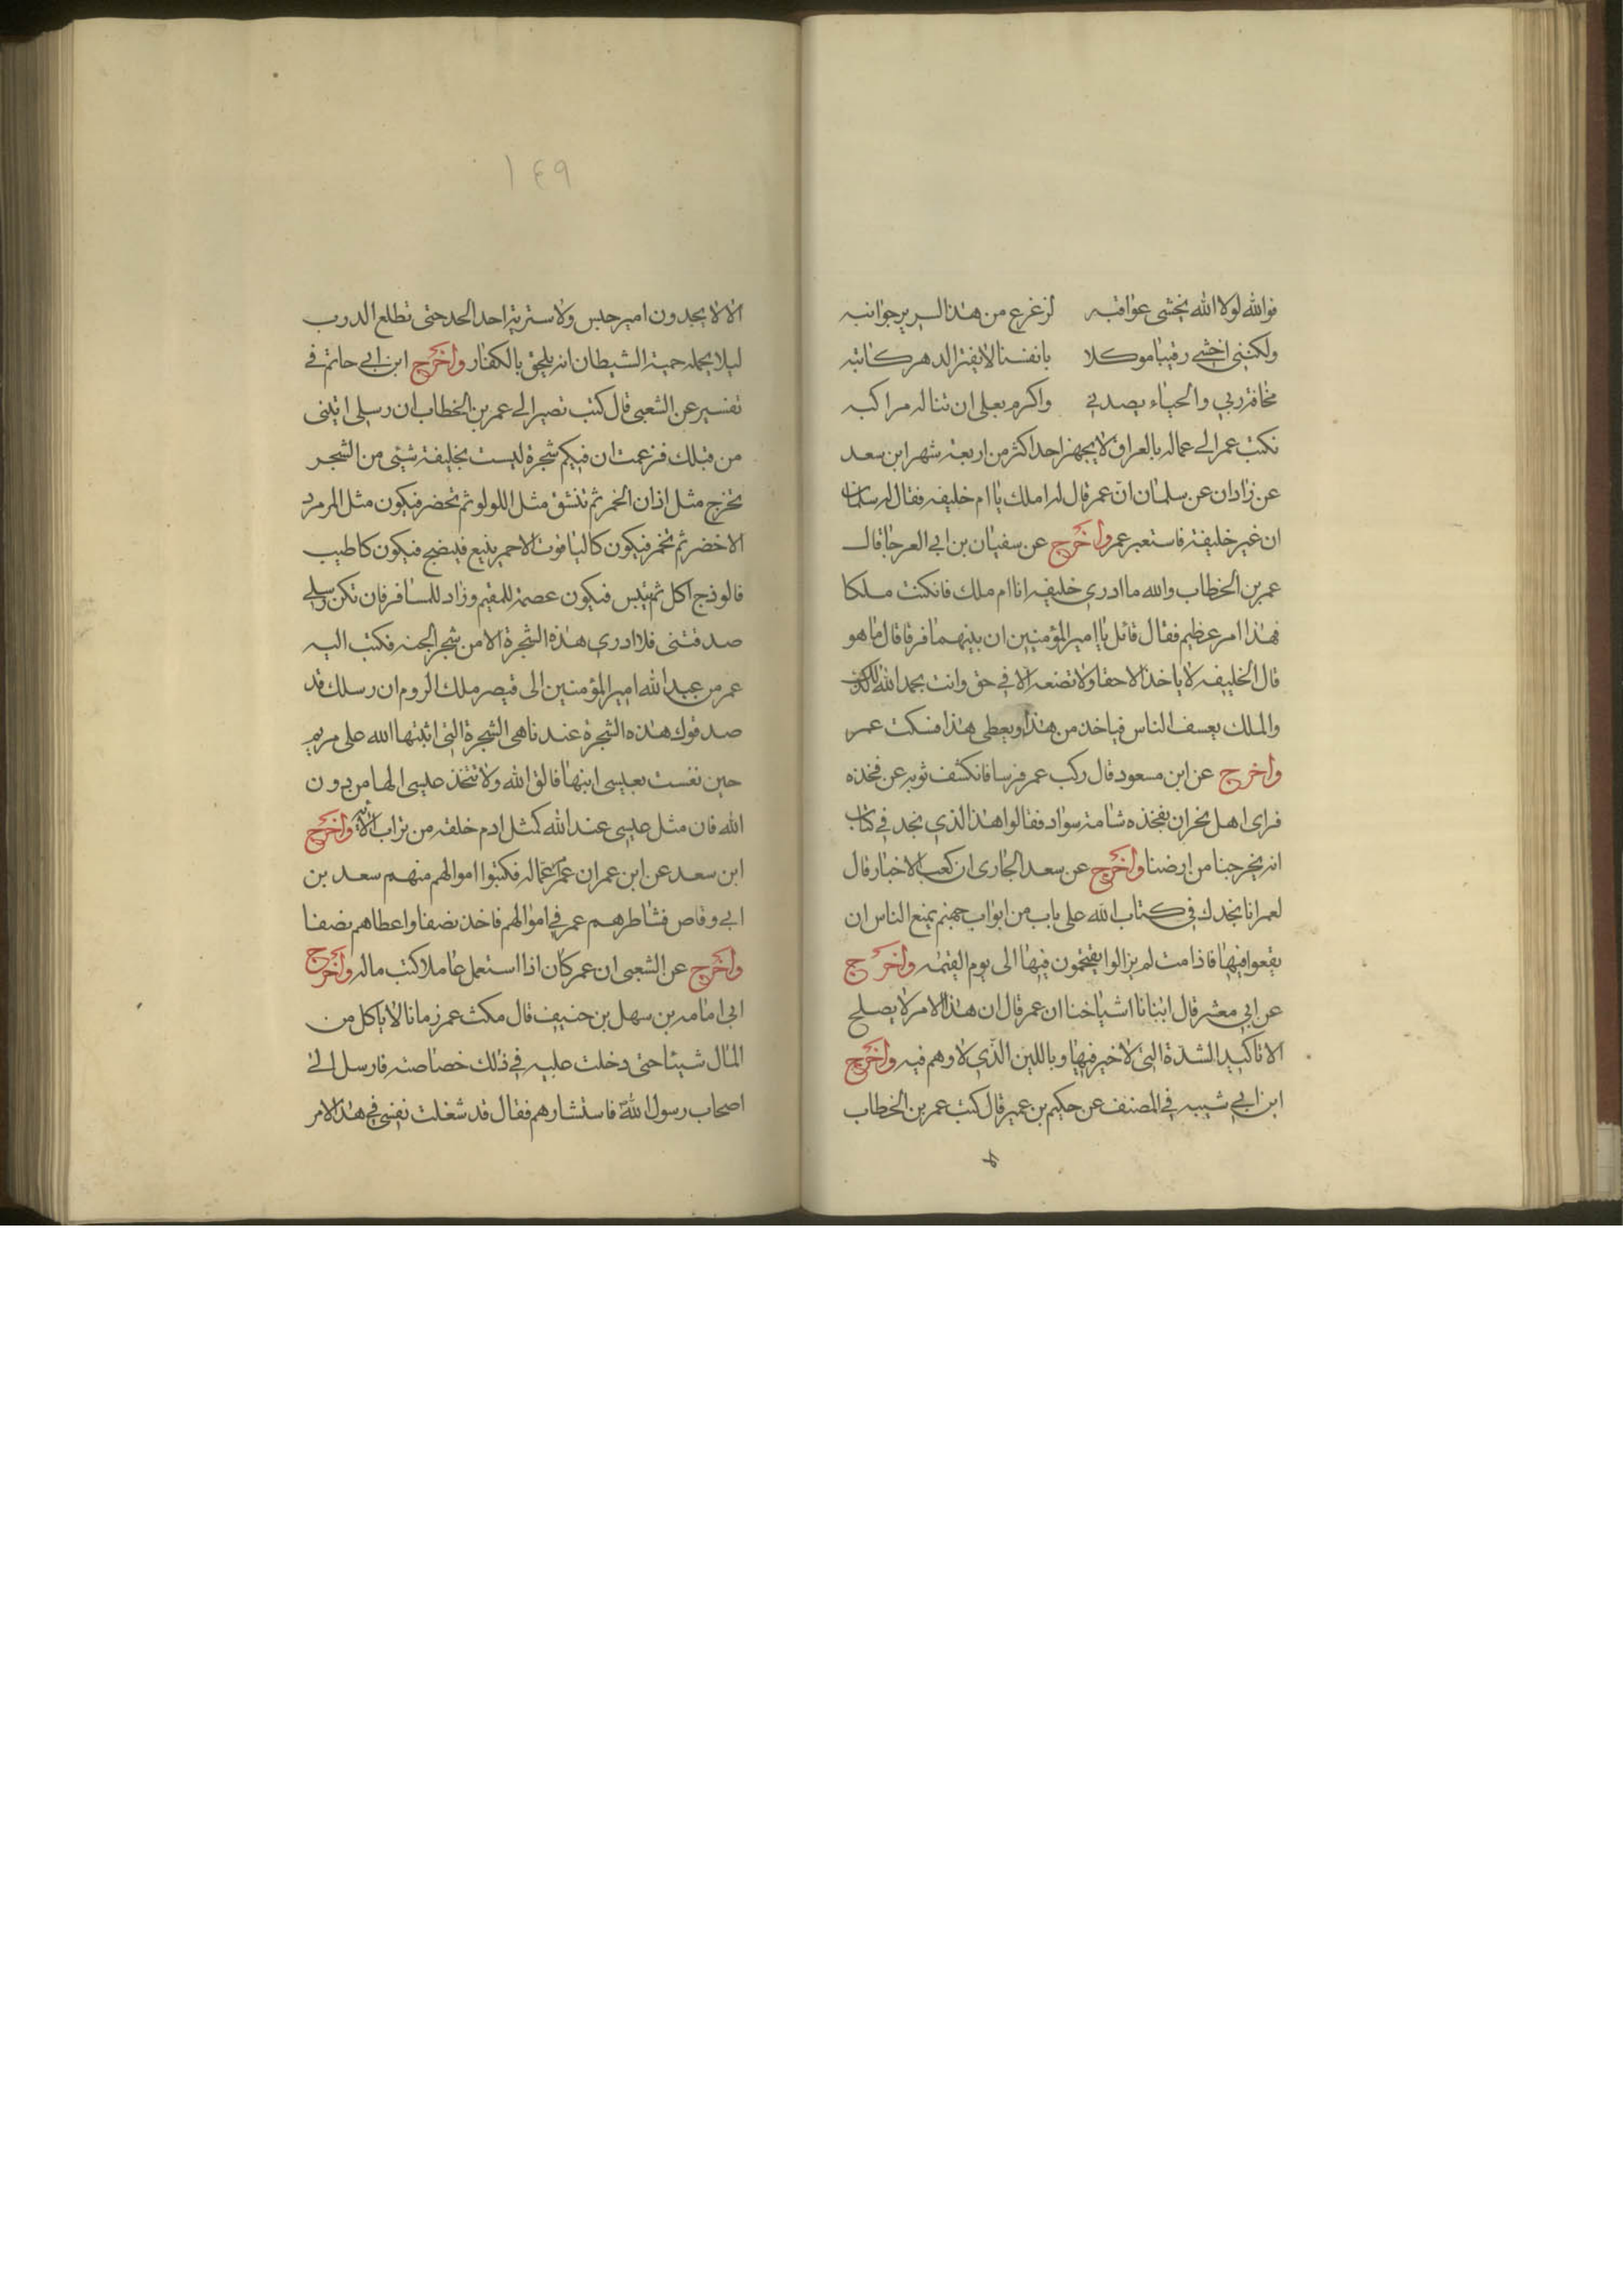 فوالله لولا الله يخشى عواقبه لزعزع من هذا السرير جوانبه
ولكننى اخشى رقيبا موكلا بانفسنا لا يفتر الدهر كاتبه
مخافة ربي والحياء يصدني واكرم بعلى ان تنال مراكبه
فكتب عمر الى عماله بالعراق لا يجهز احدا كثر من اربعة شهر ابن سعد
عن زادان عن سلمان ان عمر قال له املك يا ام خليفه فقال له سلمان
ان غير خليفة فاستعبر عمر واخرج عن سفيان بن ابي العرجا قال
عمر بن الخطاب والله ما ادري خليفه انا ام ملك فان كنت ملكا
فهذا امر عظيم فقال قائل يا امير المؤمنين ان بينهما فرقا قال ما هو
قال الخليفه لا ياخذ الا حقا ولا تضعه الا في حق وانت بحمد الله كذلك
والملك يعسف الناس فياخذ من هذا ويعطى هذا فسكت عمر
واخرج عن ابن مسعود قال ركب عمر فرسا فانكشف ثوبه عن فخذه
فراى اهل نجران بفخذه شامة سواد فقالوا هذا الذي نجد في كتابنا
انه يخرجنا من ارضنا واخرج عن سعد الجارى ان كعب الاخبار قال
لعمر انا نجدك في كتاب الله على باب من ابواب جهنم يمنع الناس ان
يقعوا فيها فاذا مت لم يزالوا يقتحمون فيها الى يوم القيمه واخرج
عن ابي معشر قال انبانا اشياخنا ان عمر قال ان هذا الامر لا يصلح
الا تاكيد الشدة التى لا خير فيها وباللين الذي لا وهم فيه واخرج
ابن ابي شيبه في المصنف عن حكيم بن عمير قال كتب عمر بن الخطاب
١٤٩
الا لا يجدون امير حبس ولا سترية احد الحد حتى تطلع الدرب
ليلا يحمله حمية الشيطان انه يلحق بالكفار واخرج ابن ابي حاتم في
تفسير عن الشعبى قال كتب نصير الى عمر بن الخطاب ان رسلى اتينى
من قبلك فزعمت ان فيكم شجرة ليست بخليفة شيئى من الشجر
تخرج مثل اذان الحمر ثم تنشق مثل اللولو ثم تخضر فيكون مثل المرمرد
الاخضر ثم تحمر فيكون كاليا قوت الاحمر ينيع فينضج فيكون كاطيب
فالوذج اكل ثم تيبس فيكون عصمة للمقيم وزاد للمسافر فان تكن رسلي
صدقتنى فلا ادري هذه الشجرة الا من شجر الجنه فكتب اليه
عمر من عبد الله امير المؤمنين الى قيصر ملك الروم ان رسلك قد
صدقوك هذه الشجرة عندنا هى الشجرة التى انبتها الله على مريم
حين نفست بعيسى ابنها فالق الله ولا تتخذ عيسى الها من دون
الله فان مثل عيسى عند الله كمثل ادم خلقه من تراب الآية واخرج
ابن سعد عن ابن عمر ان عمر عماله فكتبوا اموالهم منهم سعد بن
ابي وقاص فشاطرهم عمر في اموالهم فاخذ نصفا واعطاهم نصفا
واخرج عن الشعبى ان عمر كان اذا استعمل عاملا كتب ماله واخرج
ابى امامه بن سهل بن حنيف قال مكث عمر زمانا لا ياكل من
المال شيئا حتى دخلت عليه في ذلك خصاصته فارسل الى
اصحاب رسول الله فاستشارهم فقال قد شغلت نفسي في هذا الامر